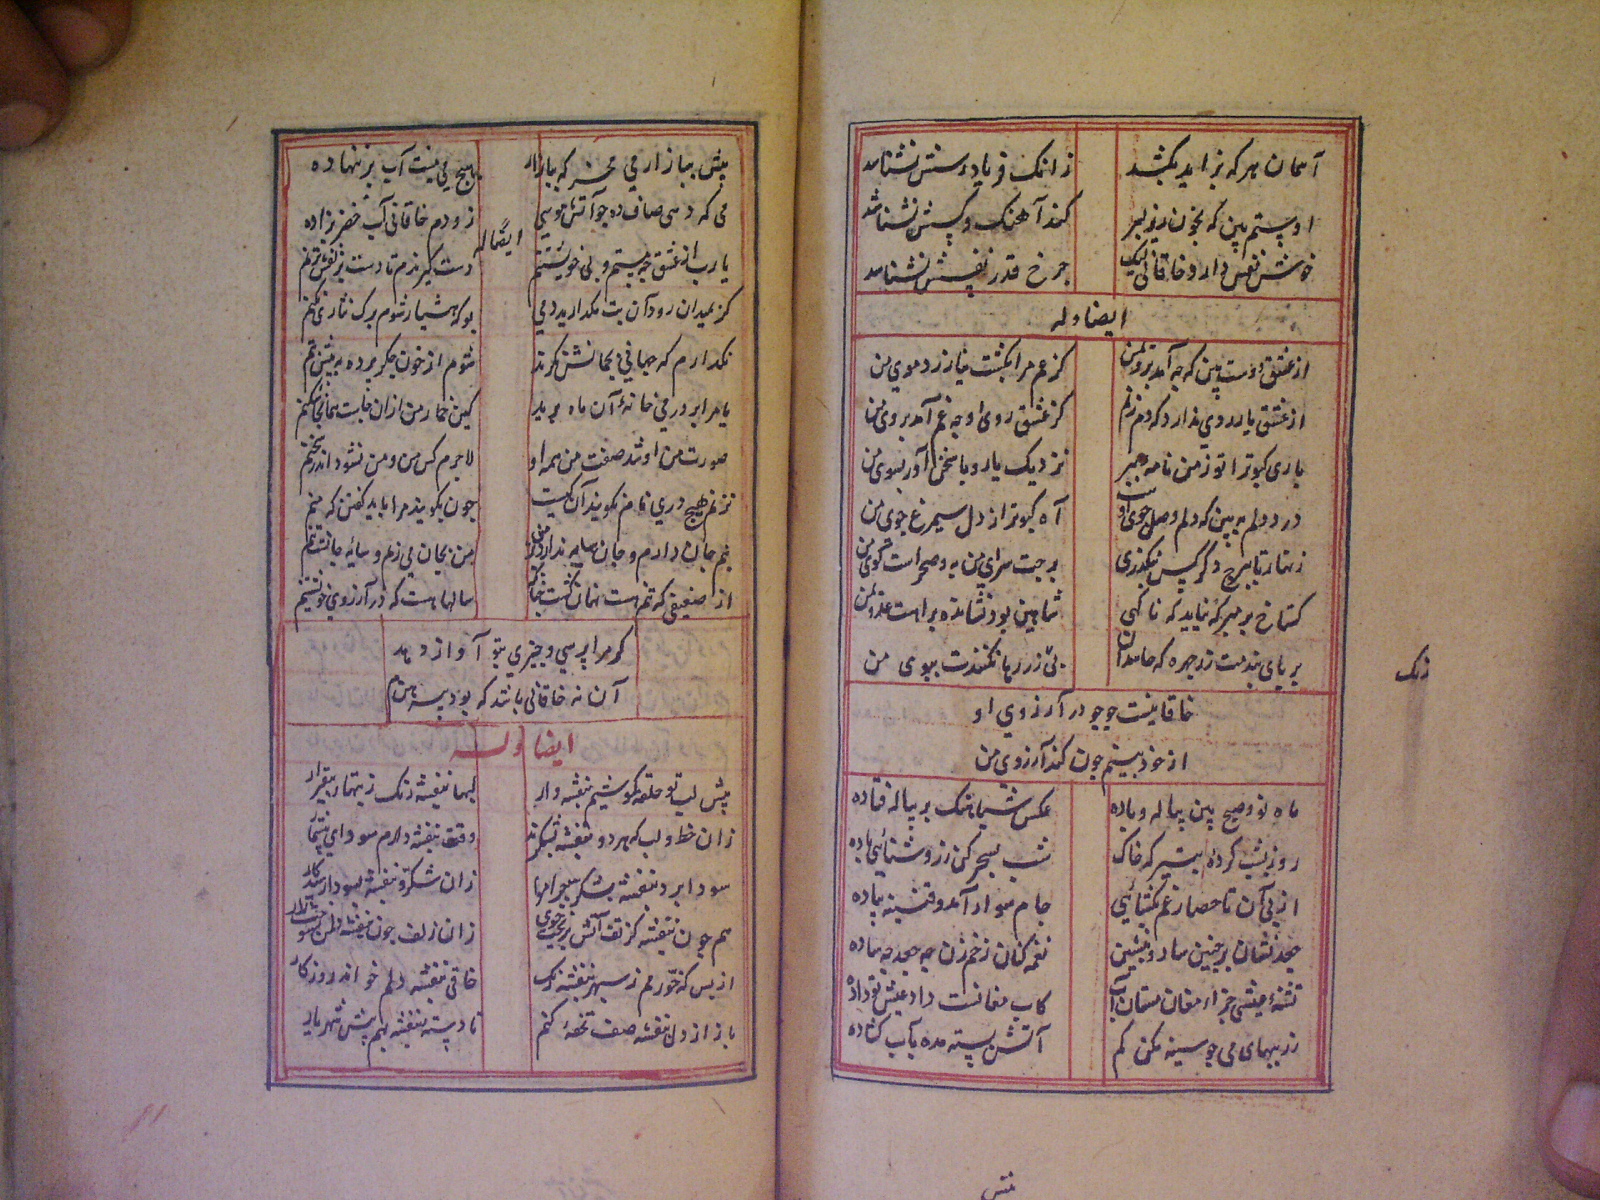 آسمان هر که بزاید بکشد زانک فریادرسش نشناسد
او ستم بین که بخون ریز کند آهنک و کسش نشناسد
خوش نفس دارد خاقانی لیک چرخ قدر نفسش نشناسد
ایضا وله
از عشق دوست بین که چه آمد بروی من کز غم مرا بکشت نیازرد موی من
از عشق یار روی ندارد که دم زنم کز عشق روی او چه غم آمد بروی من
باری کبوترا تو ز من نامه ببر نزدیک یار و پاسخش آور بسوی من
درد دلم ببین که دلم وصل جوی اوست آه کبوتر از دل سیمرغ جوی من
زنهار تا ببرج دکر کس بنکذری برجت سرای من به و صحراست کوی من
کستاخ بر مپر که نباید که ناکهی شاهین بود نشانده براهت عدوی من
بر پای بندمت زر چهره که حاسدان بی زر رها نکنندت ببوی من
خاقانیست جو جو در آرزوی او
از خود بپرسم چون کند آرزوی من
ماه نو و صبح بین پیاله و باده عکس شباهنک بر پیاله فتاده
روز بشب کرده بیشتر که خاک شب بسحر کن ز روشنائی باده
از پی آن تا حصار غم بکشائی جام سوار آمد و قنینه پیاده
جعد نشان بر جبین ساده و بنشین نغمه کنان زخم زن چه جعد چه ساده
تشنه عیشی جز از مغان مستان آب کاب مغانست داد عیش تو داده
زر ببهای می جو سیم مکن کم آتش بسته مده بآب کشاده
زنک
پیش
پیش ببازار می مخر که ببازار هیچ می نیست آب بر ننهاده
می که دهی صاف ده چو آتش موسی زو دم خاقانی آب خضر بزاده
ایضا له
یا رب از عشق چه مستم و بی خویشتنم دست کیریدم تا دست بزلفش نزنم
کر بمیدان رود آن بت مکدارید دمی بو که هشیار شوم برک نثاری بکنم
نکدارم که جهانی بجمالش نکرند شوم از خون جکر پرده به پیشش بتنم
یا مرا بر در می خانه آن ماه برید که من خمار من از آن جاست بجانجا شکنم
صورت من او شد صفت من همه او لاجرم کس من و من نشنود اندر سخنم
نزنم هیچ دری تام نکویند آن کیست چون بکویند مرا باید کفتن که منم
نیم جان دارم و جان سایه ندارد من بجان می زیم و سایه جانست تنم
از ضعیفی که تنم هست نهان کشت چنانک سالها هست که در آرزوی خویشتنم
کر مرا پرسی و چیزی بتو آواز دهد
آن نه خاقانی باشد که بود پیرهنم
ایضا وله
پیش لب تو حلقه بکوشیم بنفشه وار لبها بنفشه رنک ز تبهاء بیقرار
زان خط و لب که هر دو بنفشه بشکرند وقت بنفشه دارم سودای بی شمار
سودا برد بنفشه بشکر چرا مرا زان شکر و بنفشه بسودا رسید کار
هم چون بنفشه کز تف آتش بریخت خوی زان زلف چون بنفشه
از بس که خورده‌ام ز سپهر بنفشه رنک خاقی بنفشه دلم خواند روزکار
باز از دل بنفشه صفت تحفه کنم تا دسته بنفشه نهم پیش شهریار